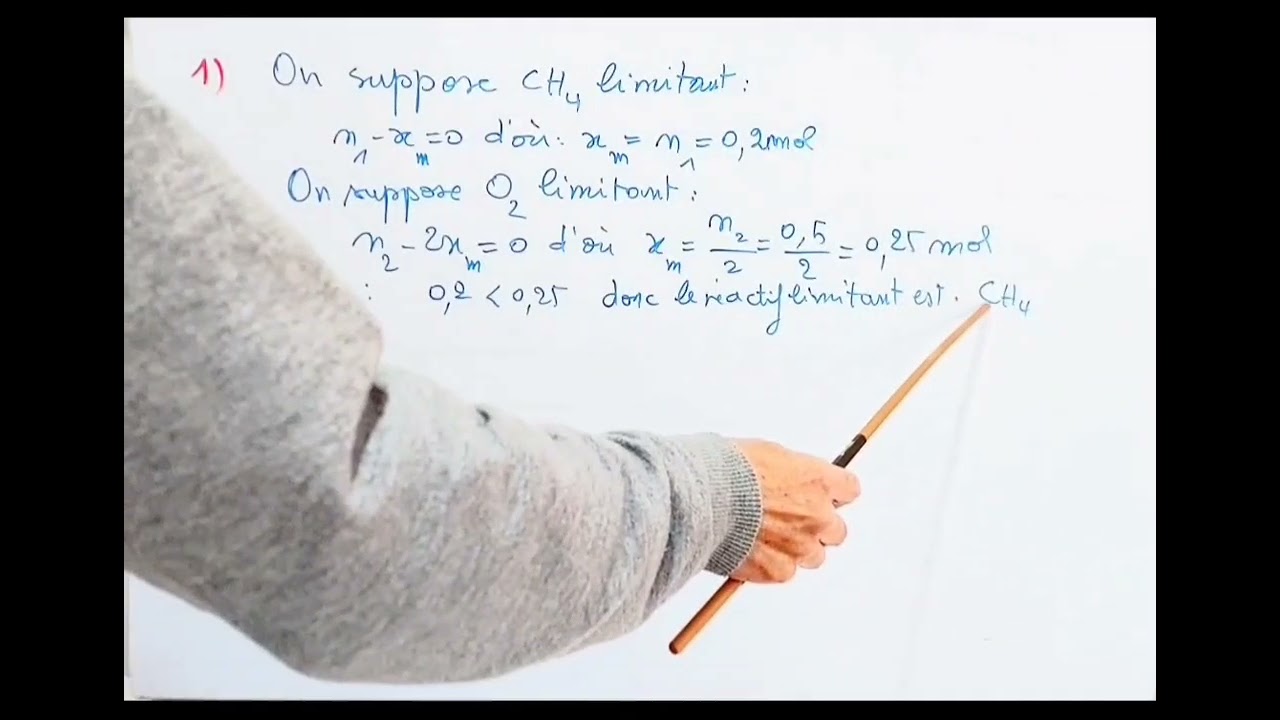 1) On suppose CH₄ limitant :
n₁ - x_m = 0 d'où : x_m = n₁ = 0,2 mol
On suppose O₂ limitant :
n₂ - 2x_m = 0 d'où x_m = n₂/2 = 0,5/2 = 0,25 mol
: 0,2 < 0,25 donc le réactif limitant est . CH₄